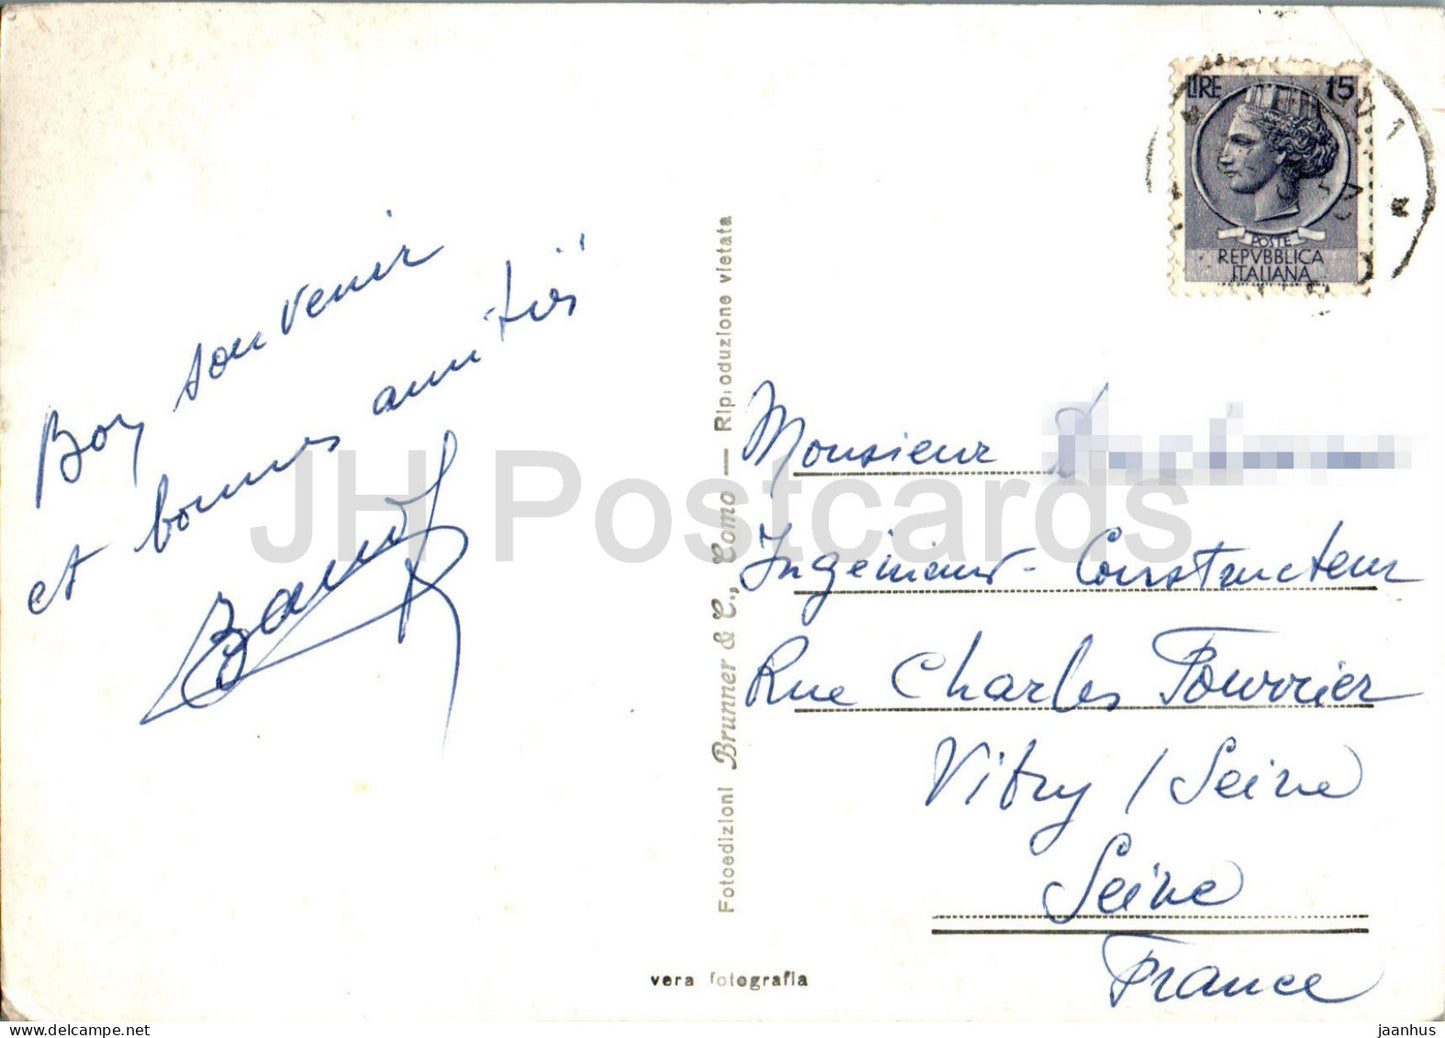 Bon souvenir
et bonnes amitiés
LIRE 15
POSTE
REPVBBLICA
ITALIANA
Monsieur
Ingénieur-Constructeur
Rue Charles Fourrier
Vitry / Seine
Seine
France
Fotoedizioni Brunner & C., Como — Riproduzione vietata
vera fotografia
JH Postcards
jaanhus / delcampe.net